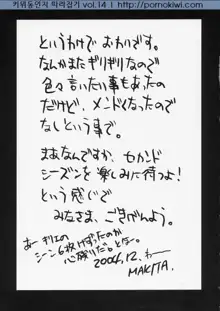 키위동인지 따라잡기 vol.14 | http://pornokiwi.com
というわけで おわりです。
なんかまたギリギリなので
色々言いたい事もあったの
だけど、メンドくなったので
ないという事で。
まあなんですか、セカンド
シーズンを楽しみに待つよ!
という感じで
みなさま、ごきげんよう。
あーギリエの
シーン6枚けずったのが
心残りだ。となー。
2006.12.
MAKITA.